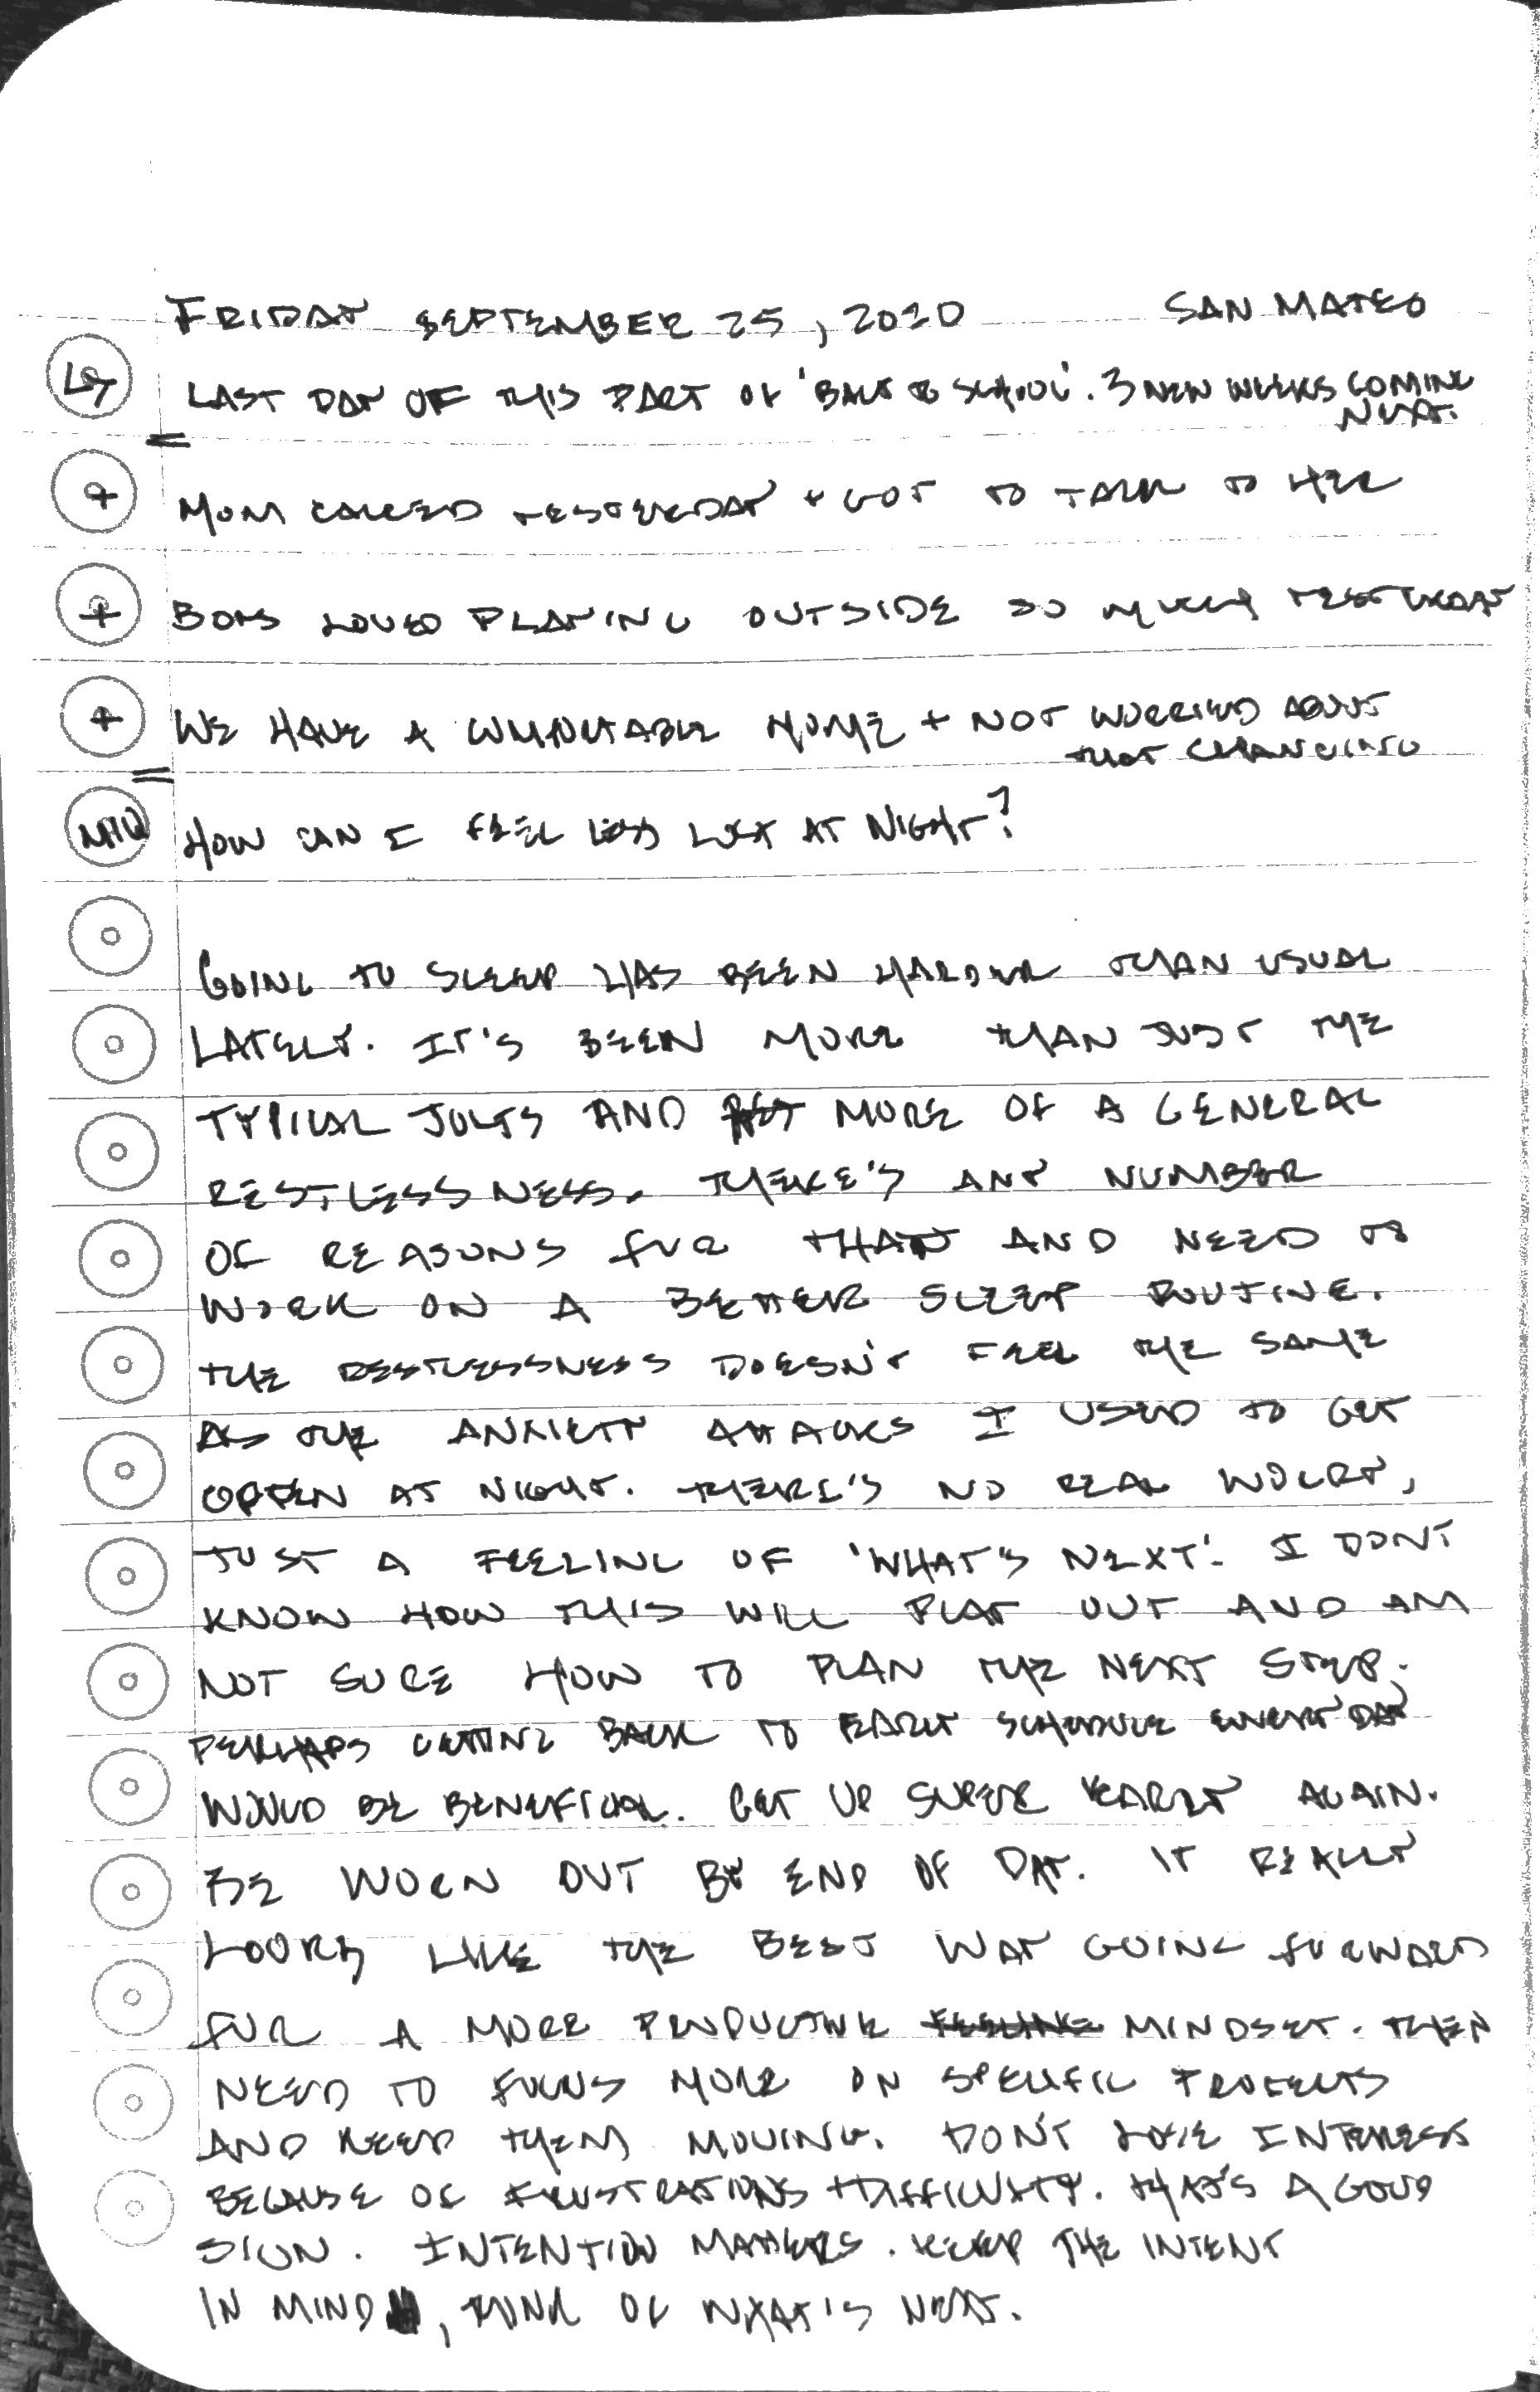 FRIDAY SEPTEMBER 25, 2020 SAN MATEO
LAST DAY OF THIS PART OF 'BACK TO SCHOOL'. 3 NEW WEEKS COMING
NEXT.
+ MOM CALLED YESTERDAY + GOT TO TALK TO HER
+ BOYS LOVED PLAYING OUTSIDE SO MUCH YESTERDAY
+ WE HAVE A COMFORTABLE HOME + NOT WORRIED ABOUT
THAT CHANGING
HOW CAN I FEEL LESS LOST AT NIGHT?
GOING TO SLEEP HAS BEEN HARDER THAN USUAL
LATELY. IT'S BEEN MORE THAN JUST THE
TYPICAL JOLTS AND MORE OF A GENERAL
RESTLESSNESS. THERE'S ANY NUMBER
OF REASONS FOR THAT AND NEED TO
WORK ON A BETTER SLEEP ROUTINE.
THE RESTLESSNESS DOESN'T FEEL THE SAME
AS THE ANXIETY ATTACKS I USED TO GET
OFTEN AT NIGHT. THERE'S NO REAL WORRY,
JUST A FEELING OF 'WHAT'S NEXT'. I DONT
KNOW HOW THIS WILL PLAY OUT AND AM
NOT SURE HOW TO PLAN THE NEXT STEP.
PERHAPS GETTING BACK TO EARLY SCHEDULE EVERY DAY
WOULD BE BENEFICIAL. GET UP SUPER EARLY AGAIN.
BE WORN OUT BY END OF DAY. IT REALLY
LOOKS LIKE THE BEST WAY GOING FORWARD
FOR A MORE PRODUCTIVE FEELING MINDSET. THEN
NEED TO FOCUS MORE ON SPECIFIC PROJECTS
AND KEEP THEM MOVING. DON'T LOSE INTEREST
BECAUSE OF FRUSTRATIONS + DIFFICULTY. THAT'S A GOOD
SIGN. INTENTION MATTERS. KEEP THE INTENT
IN MIND, THINK OF WHAT'S NEXT.